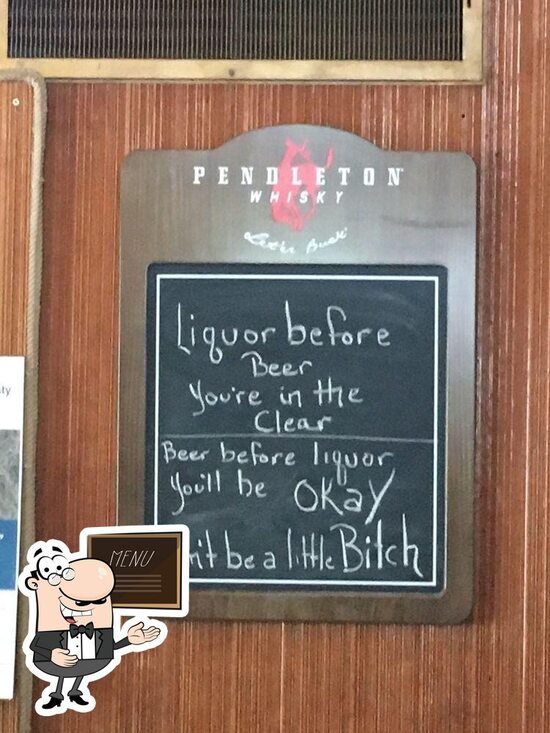 PENDLETON
WHISKY
Let'er Buck
Liquor before
Beer
You're in the
Clear
Beer before liquor
You'll be OKAY
n't be a little Bitch
MENU